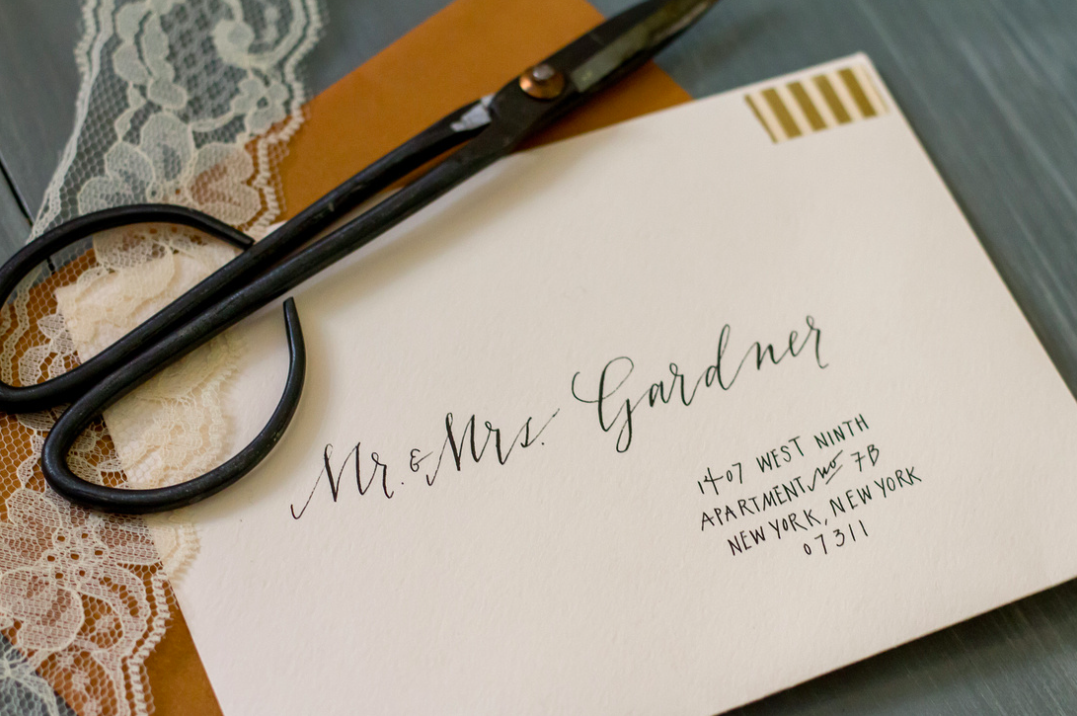 Mr. & Mrs. Gardner
1407 WEST NINTH
APARTMENT no 7B
NEW YORK, NEW YORK
07311